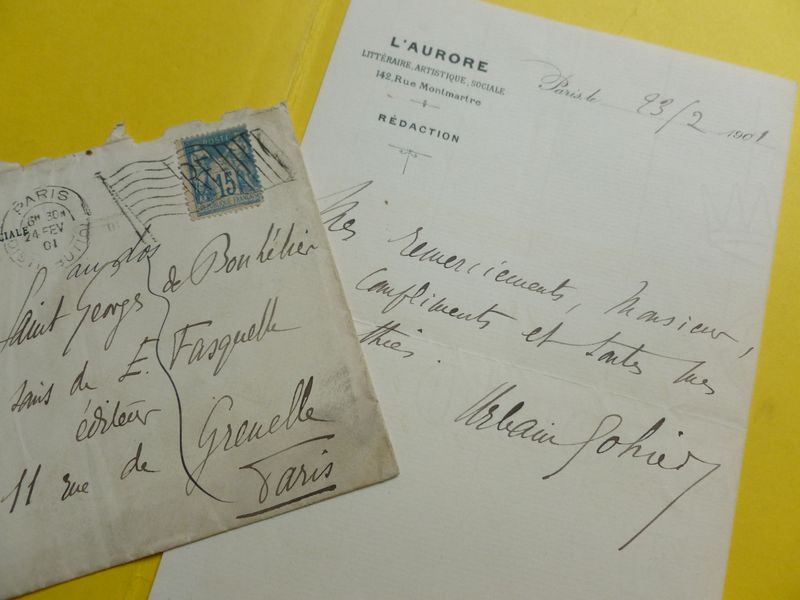 PARIS
6H 30M
24 FEV
01
CIALE
POSTE
15
RÉPUBLIQUE FRANÇAISE
Saint Georges de Bouhélier
E. Fasquelle
éditeur
11 rue de Grenelle
Paris
L'AURORE
LITTÉRAIRE, ARTISTIQUE, SOCIALE
142, Rue Montmartre
RÉDACTION
Paris, le 23/2 1901
Mes remerciements, Monsieur,
compliments et toutes mes
thies.
Urbain Gohier